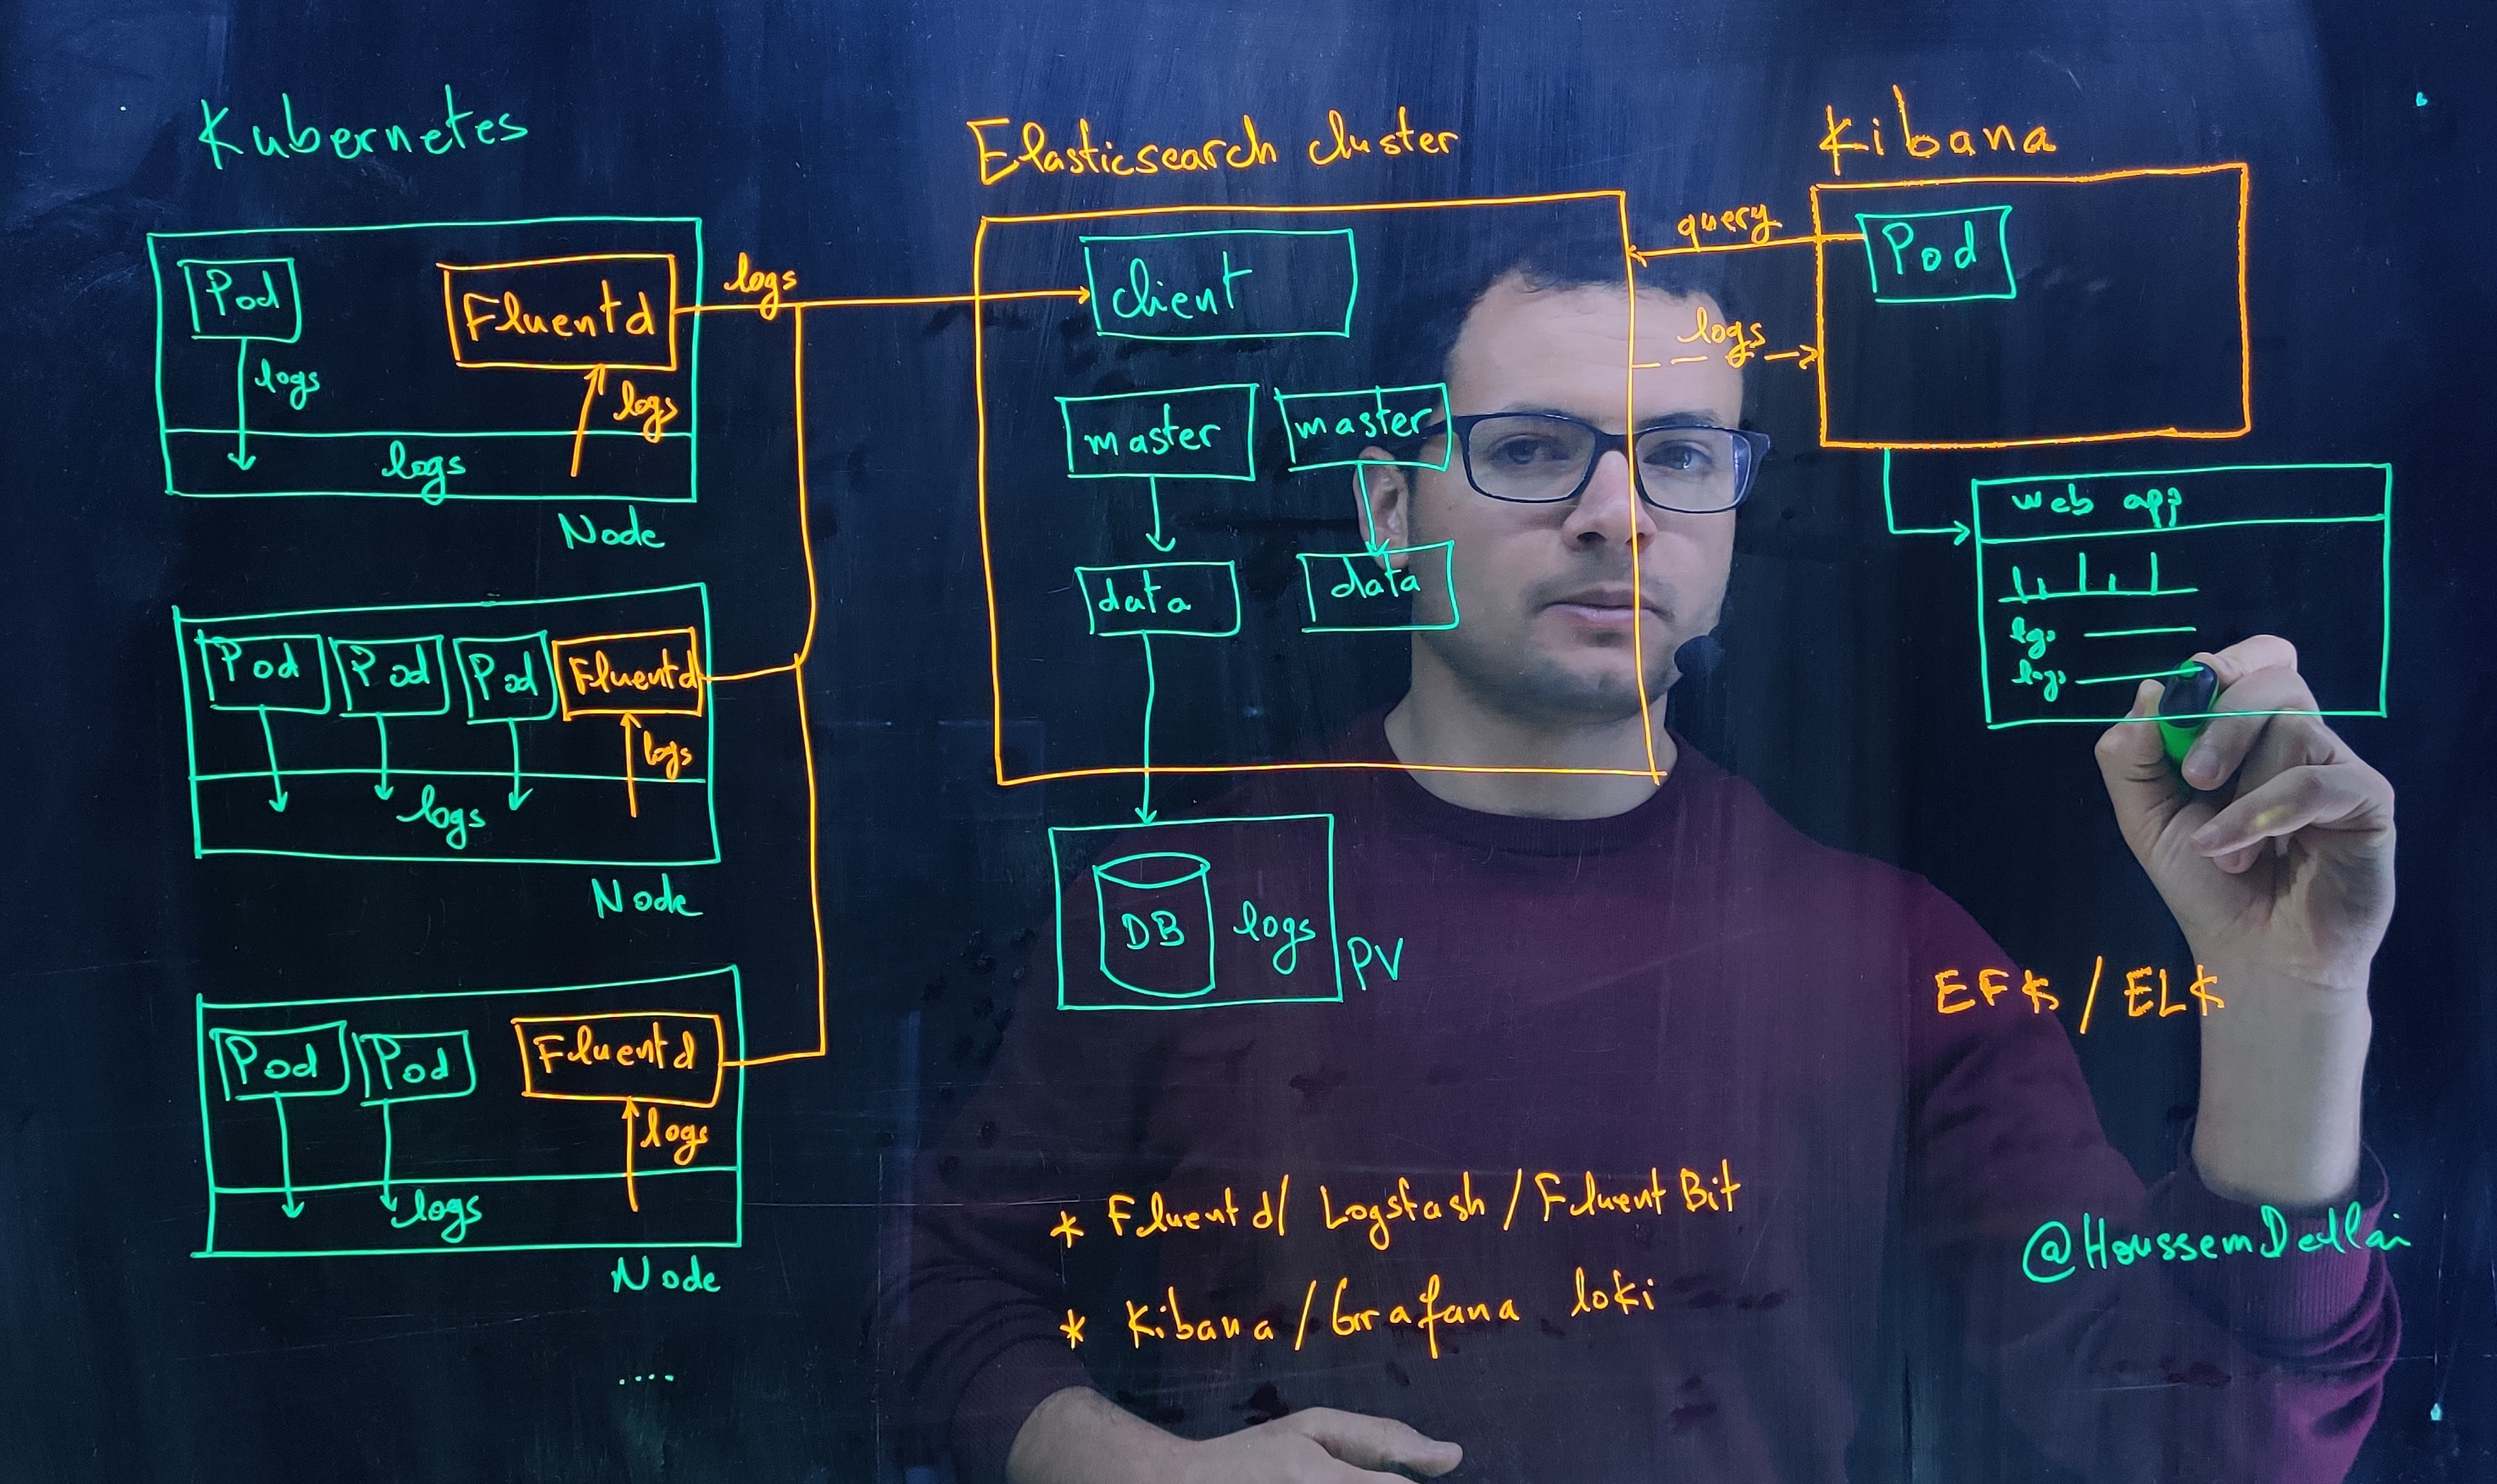 Kubernetes
Pod
Fluentd
logs
logs
logs
logs
Node
Pod
Pod
Pod
Fluentd
logs
logs
Node
Pod
Pod
Fluentd
logs
logs
Node
....
Elasticsearch cluster
client
master
master
data
data
DB
logs
PV
query
logs
Kibana
Pod
web app
logs
logs
EFK / ELK
* Fluentd / Logstash / Fluent Bit
* Kibana / Grafana loki
@HoussemDellai